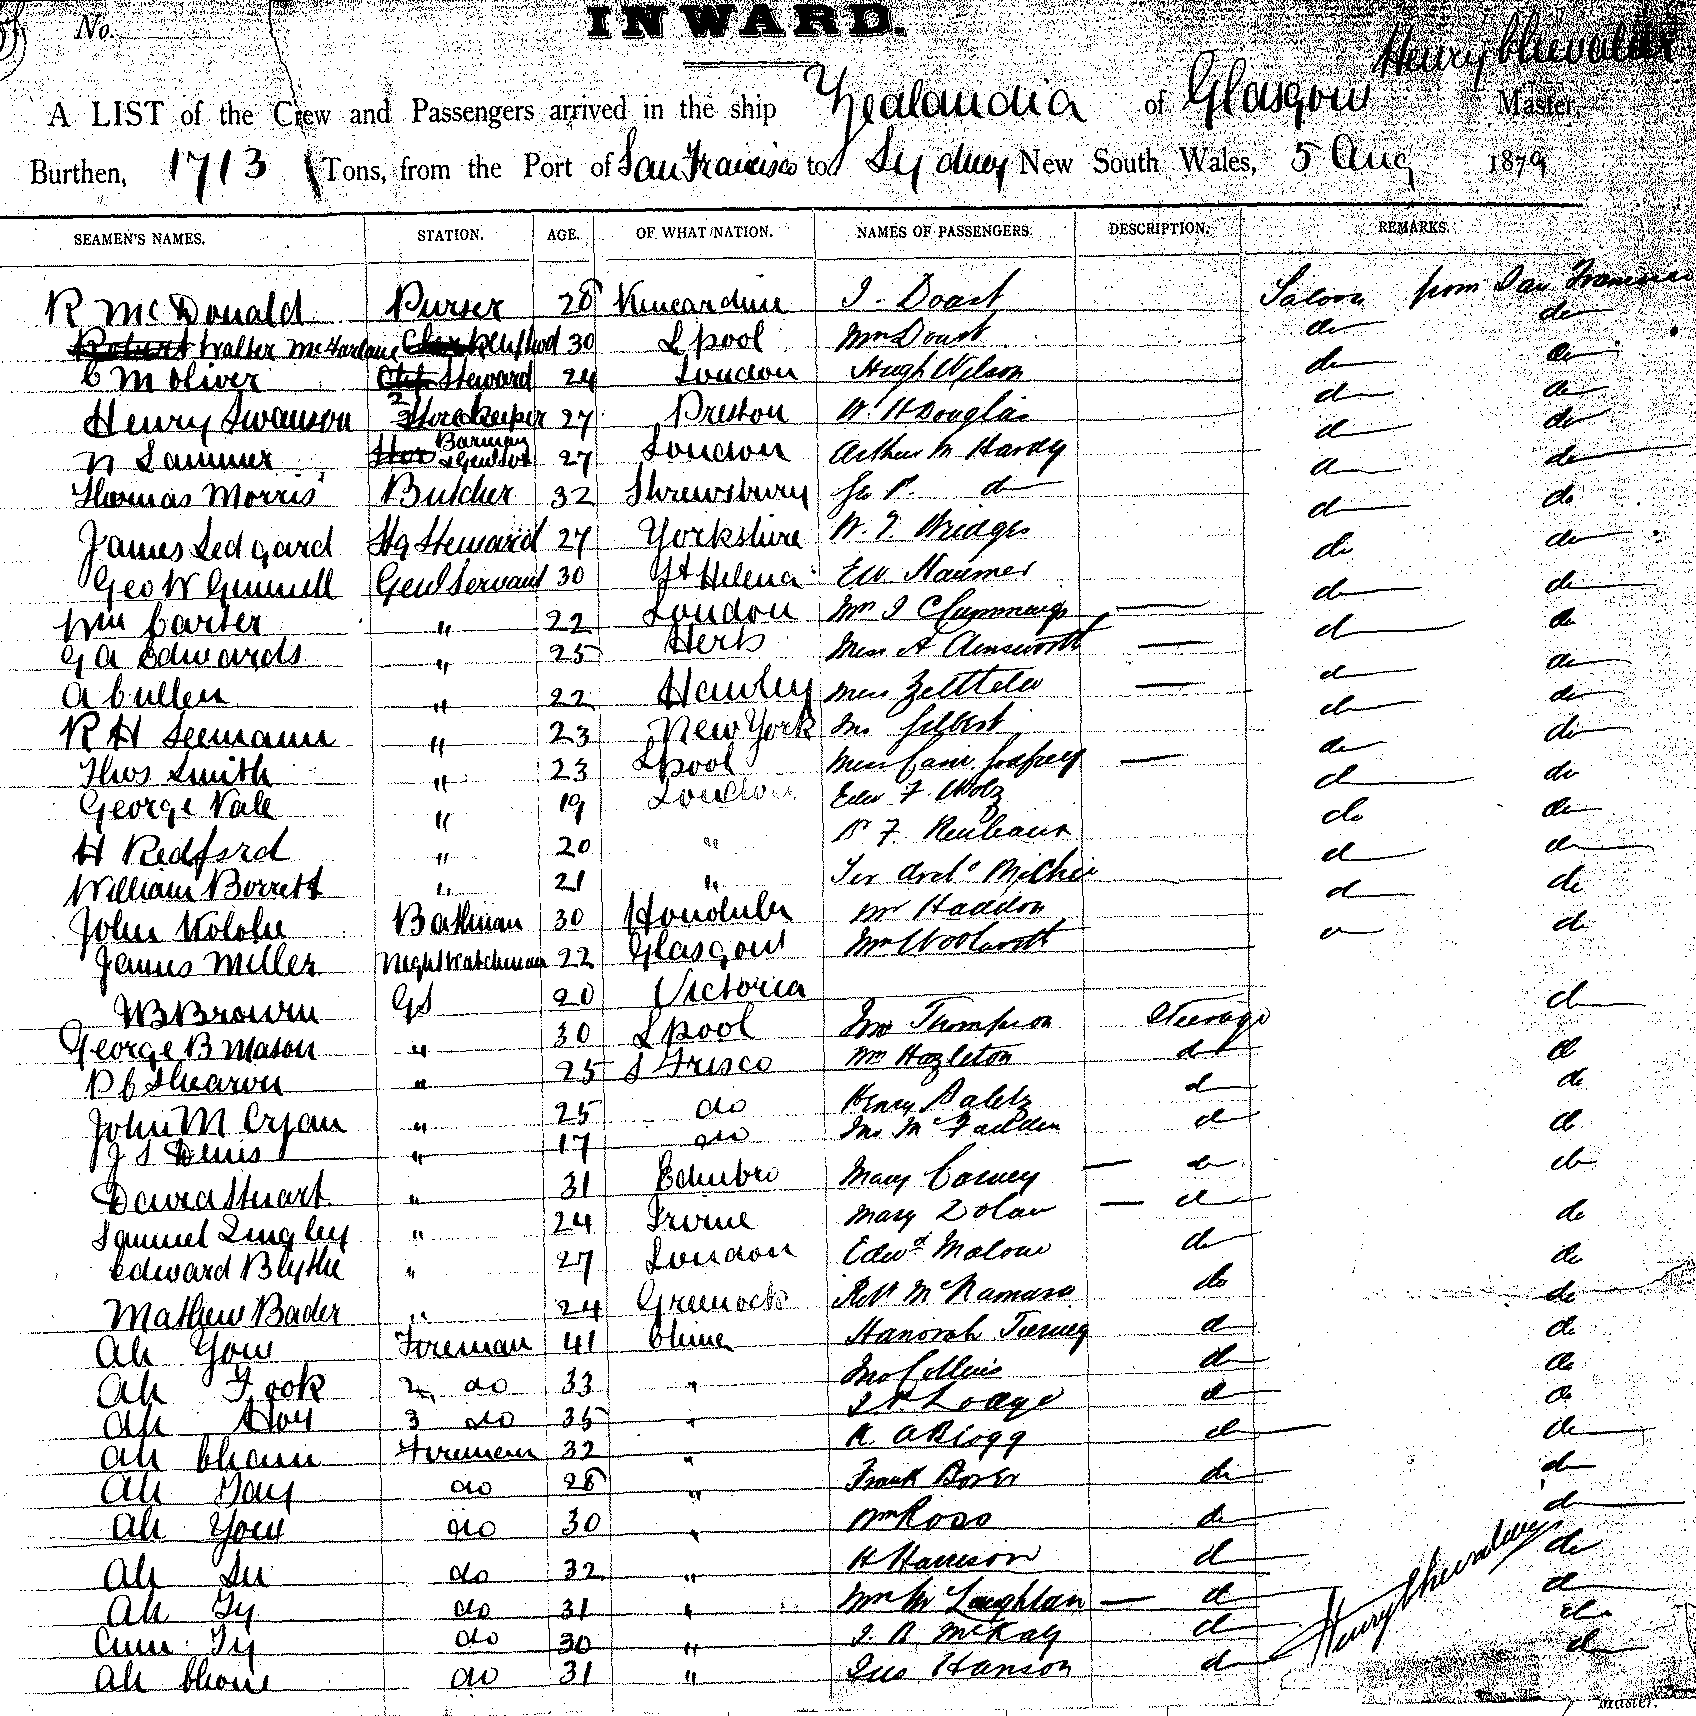 No.
INWARD.
Henry Chevalier
A LIST of the Crew and Passengers arrived in the ship Zealandia of Glasgow Master,
Burthen, 1713 Tons, from the Port of San Francisco to Sydney New South Wales, 5 Aug 1879
SEAMEN'S NAMES. STATION. AGE. OF WHAT NATION. NAMES OF PASSENGERS. DESCRIPTION. REMARKS.
R McDonald Purser 28 Kincardine J. Doast Saloon from San Francisco
Walter McFarlane 30 Lpool Mrs Doast do do
C M Oliver Steward 24 London Hugh Wilson do do
Henry Swanson 2 Storekeeper 27 Preston W. H Douglas do do
N Sammer Barman & Genl Svt 27 London Arthur M Hardy do do
Thomas Morris Butcher 32 Shrewsbury do do do
James Ledgard Stg Steward 27 Yorkshire W. T. Bridges do do
Geo W Gemmell Genl Servant 30 St Helena do do
Wm Carter " 22 London Mrs J C Cummings — do do
G A Edwards " 25 Herts Miss A Ainsworth — do do
A Cullen " 22 Hanley Miss — do do
R H Seemann " 23 New York Gilbert do do
Thos Smith " 23 Lpool Miss Godfrey — do do
George Vale " 19 London do do
H Redford " 20 " do do
William Borrett " 21 " Sir Archd Michie do do
John Kolohe Bathman 30 Honolulu Mr Haddon do do
James Miller Night Watchman 22 Glasgow Mrs Woolworth do do
W B Brown GS 20 Victoria
George B Mason " 30 Lpool Jno Thompson Steerage do
P C Shearon " 25 S Frisco Wm Hazleton do do
John M Cryan " 25 do Henry do do
J S Denis " 17 do Jno McFadden do do
David Stuart " 31 Edinbro Mary Carney — do do
Samuel Lingley " 24 Irvine Mary Dolan — do do
Edward Blythe " 27 London Edwd Malone do do
Mathew Bader " 24 Greenock Robt McNamara do do
Ah Yow Foreman 41 China Hanorah Tierney do do
Ah Fook 2 do 33 " Jno Collins do do
Ah Hoy 3 do 35 " Lodge do do
Ah Cham Firemen 32 " do do
Ah Gay do 28 " Frank do do
Ah Yow do 30 " Wm Ross do do
Ah Su do 32 " H Harrison do do
Ah Ty do 31 " Mrs McLaughlan — do do
Cum Ty do 30 " J. R. McKay do do
Ah Chong do 31 " Hanson do do
Henry Chevalier
Master.